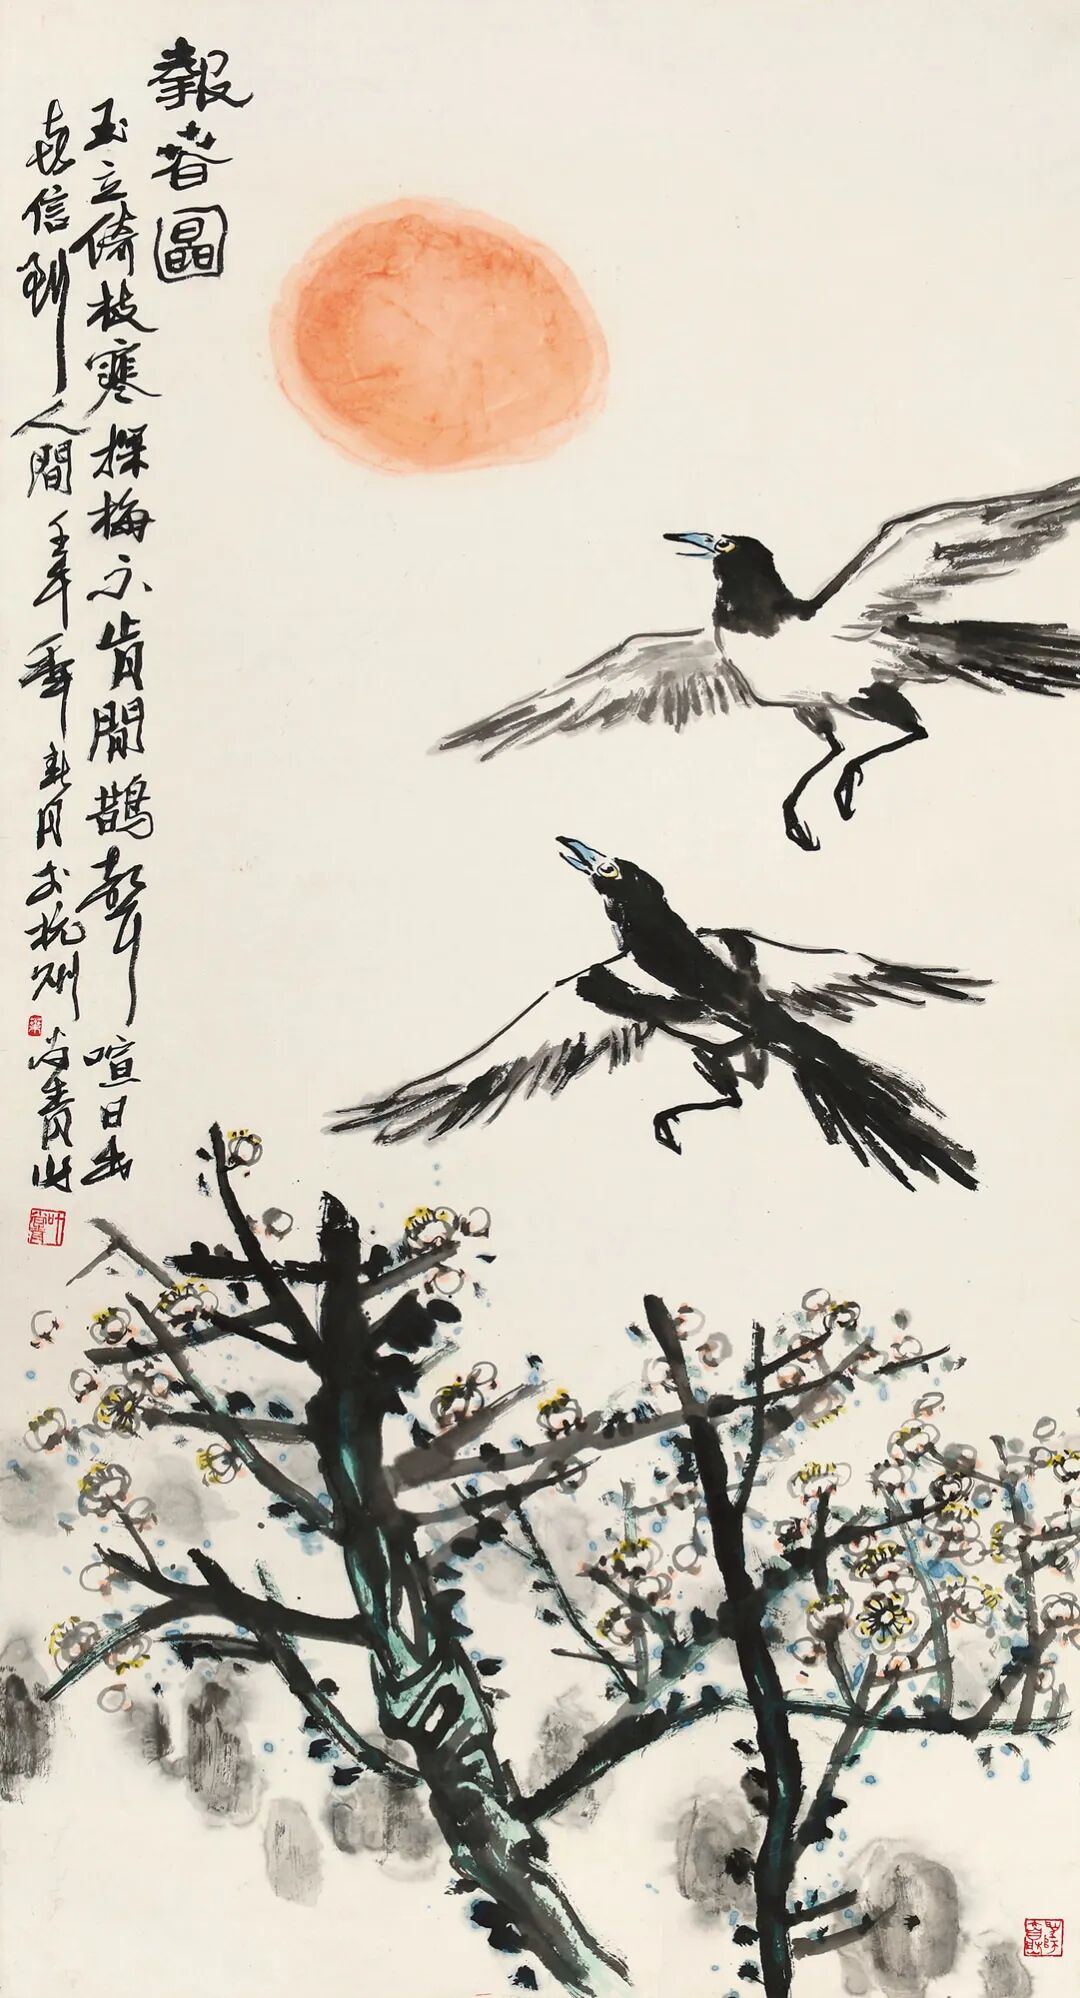 報春圖
玉立倚枝寒探梅不肯閒鵲聲喧日出
喜信到人間壬午年春月於杭州尚青